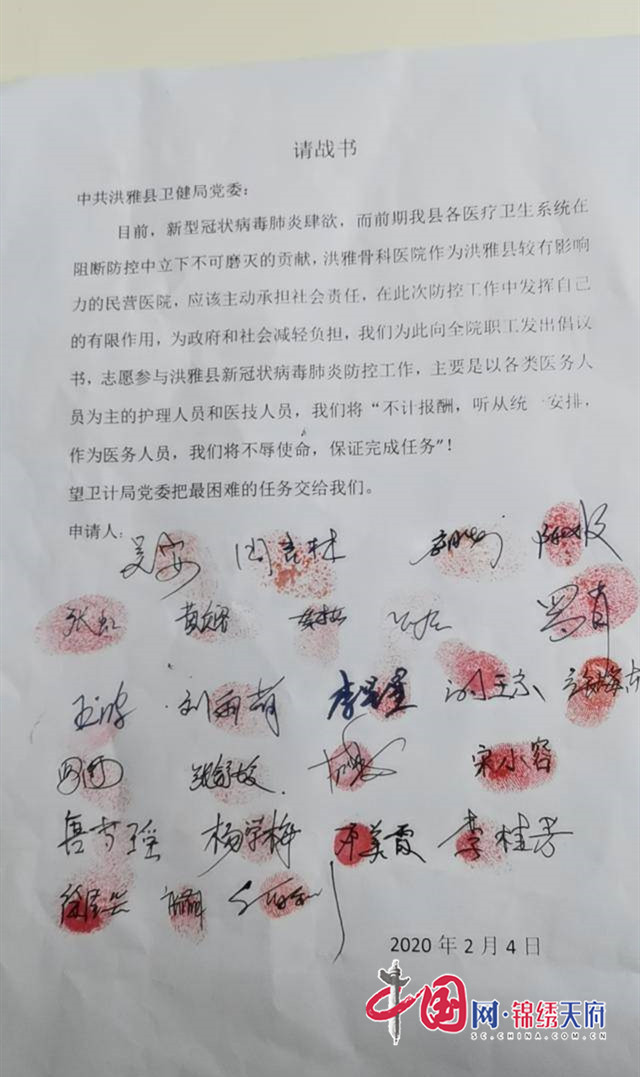 请战书
中共洪雅县卫健局党委：
目前，新型冠状病毒肺炎肆欲，而前期我县各医疗卫生系统在
阻断防控中立下不可磨灭的贡献，洪雅骨科医院作为洪雅县较有影响
力的民营医院，应该主动承担社会责任，在此次防控工作中发挥自己
的有限作用，为政府和社会减轻负担，我们为此向全院职工发出倡议
书，志愿参与洪雅县新冠状病毒肺炎防控工作，主要是以各类医务人
员为主的护理人员和医技人员，我们将“不计报酬，听从统一安排，
作为医务人员，我们将不辱使命，保证完成任务”！
望卫计局党委把最困难的任务交给我们。
申请人：
吴安
张虹 罗肖
王波 刘雨萌 李星星
宋小容
唐雪瑶 杨学梅 李桂芳
2020 年 2 月 4 日
中国网·锦绣天府
SC.CHINA.COM.CN